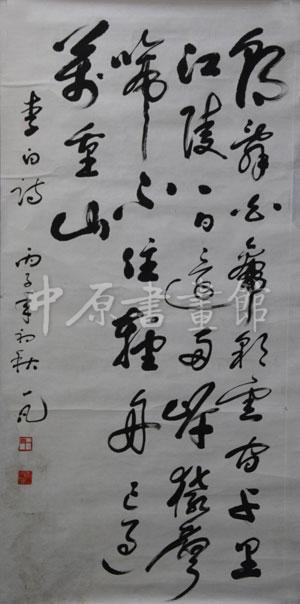 朝辭白帝彩雲間千里
江陵一日還兩岸猿聲
啼不住輕舟已過
萬重山
李白詩 丙子年初秋 一凡
中原書畫館